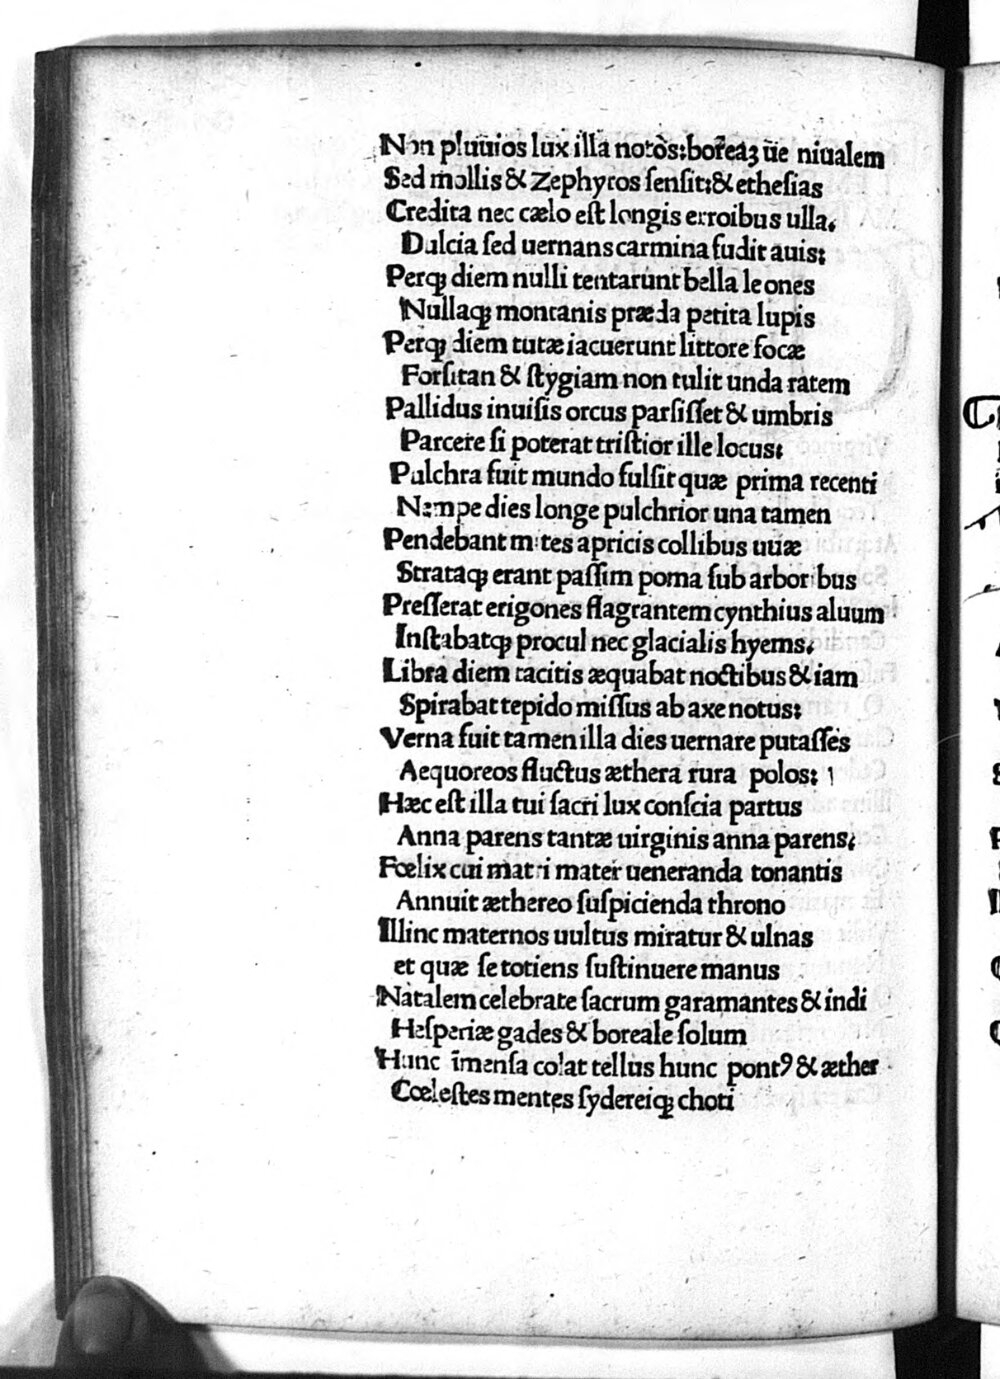 Non pluuios lux illa notos: boreaꝫ ue niualem
Sed mollis & Zephyros ſenſit: & etheſias
Credita nec cælo eſt longis erroibus ulla.
Dulcia ſed uernans carmina fudit auis:
Perꝙ diem nulli tentarunt bella leones
Nullaꝙ montanis præda petita lupis
Perꝙ diem tutæ iacuerunt littore focæ
Forſitan & ſtygiam non tulit unda ratem
Pallidus inuiſis orcus parſiſſet & umbris
Parcere ſi poterat triſtior ille locus:
Pulchra fuit mundo fulſit quæ prima recenti
Nempe dies longe pulchrior una tamen
Pendebant mites apricis collibus uuæ
Strataꝙ erant paſſim poma ſub arboribus
Preſſerat erigones flagrantem cynthius aluum
Inſtabatꝙ procul nec glacialis hyems.
Libra diem tacitis æquabat noctibus & iam
Spirabat tepido miſſus ab axe notus:
Verna fuit tamen illa dies uernare putaſſes
Aequoreos fluctus æthera rura polos:
Hæc eſt illa tui ſacri lux conſcia partus
Anna parens tantæ uirginis anna parens.
Fœlix cui matri mater ueneranda tonantis
Annuit æthereo ſuſpicienda throno
Illinc maternos uultus miratur & ulnas
et quæ ſe totiens ſuſtinuere manus
Natalem celebrate ſacrum garamantes & indi
Heſperiæ gades & boreale ſolum
Hunc īmenſa colat tellus hunc pontꝰ & æther
Cœleſtes mentes ſydereiꝙ choti